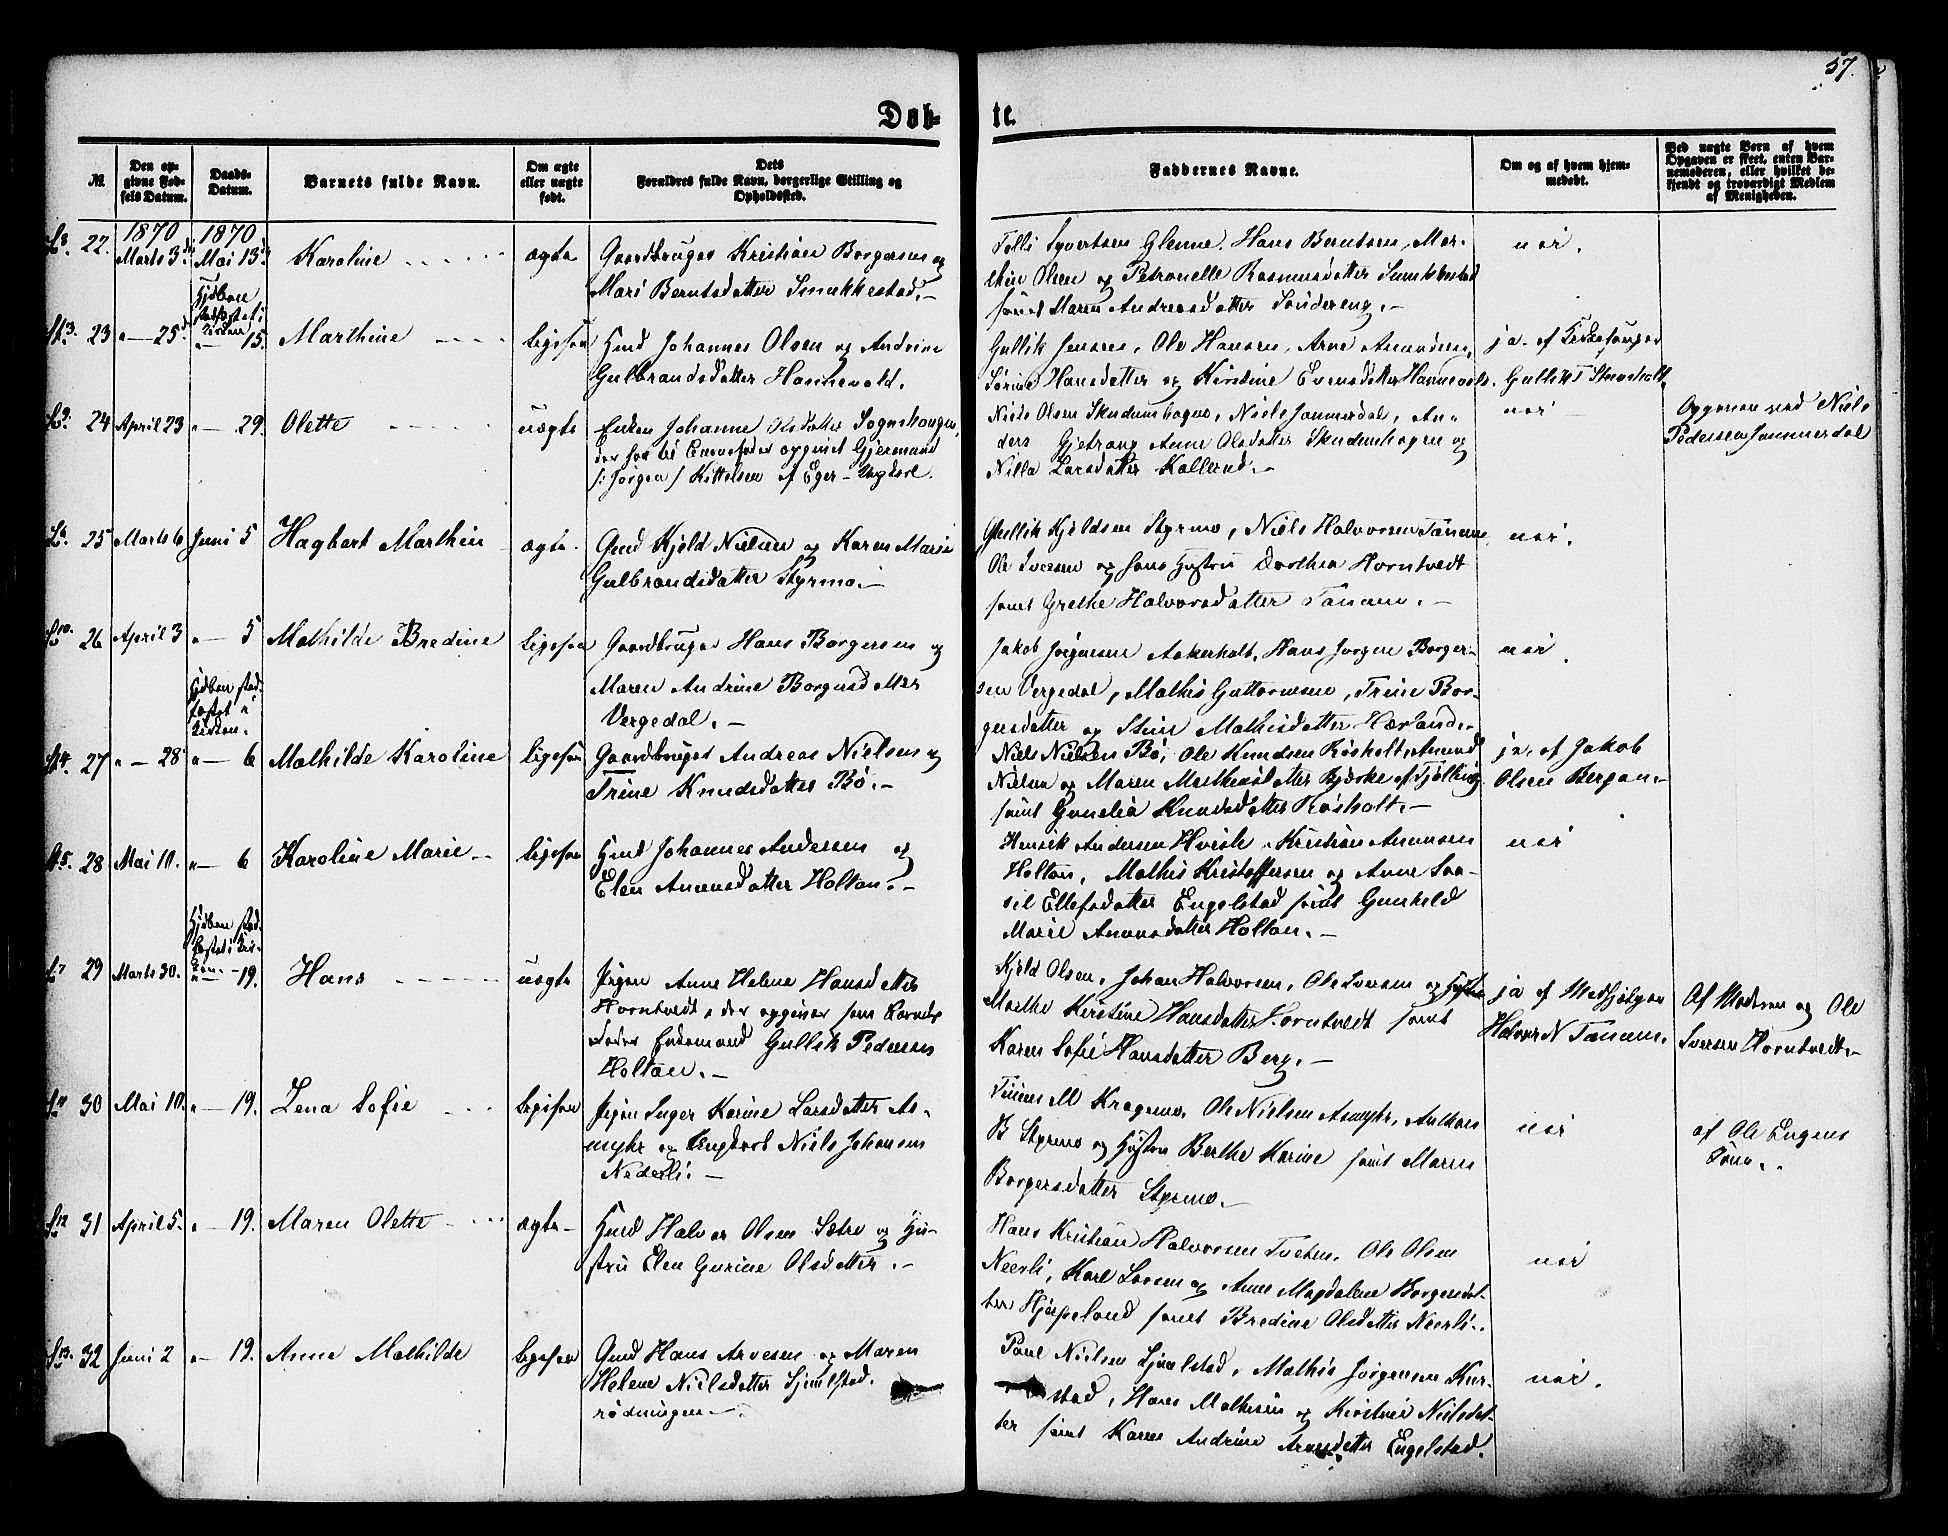 57.
Døb-
te.
№
Den op-
givne Fød-
sels Datum.
Daabs-
Datum.
Barnets fulde Navn.
Om ægte
eller uægte
født.
Dets
Forældres fulde Navn, borgerlige Stilling og
Opholdssted.
Faddernes Navne.
Om og af hvem hjem-
medøbt.
Ved uægte Børn af hvem
Opgaven er skeet, enten Bar-
nemoderen, eller hvilket be-
kjendt og troværdigt Medlem
af Menigheden.
1870 1870
22. Marts 3 Mai 13 Karoline ægte Gaardbruger Kristian Borgersen og
Mari Berntsdatter Smukkestad.
Syvertsen Glenne, Hans Berntsen, Mar-
thin Olsen og Petronelle Rasmusdatter
samt Maren Andreasdatter Søndereng.
nei.
Hjdben
stadfæstet i
Kirken
23 25 15. Marthine ligesaa Hmd Johannes Olsen og Andrine
Gulbrandsdatter Hannevold.
Gullik Jensen, Ole Hansen, Arne Amundsen,
Sørine Hansdatter og Kirstine Evensdatter Hannevold.
ja. af Kirkesanger
Gullik T
24 April 23 29. Olette uægte Enken Johanne Olsdatter Sognshougen,
der har til Barnefader opgivet Gjermund
/: Jørgen / Kittelsen af Eger - Ungkarl.
Niels Olsen Skudumhagen, Niels Jammerdal, An-
ders Gjetrang Anne Olsdatter Skudumhagen og
Nilla Larsdatter Kollerud.
nei
Opgaven ved Niels
Pedersen Jammerdal
25 Marts 6 Juni 5 Hagbart Marthin ægte. Gmd Kjeld Nielsen og Karen Marie
Gulbrandsdatter Styrmo.
Gullik Kjeldsen Styrmo, Niels Halvorsen Tanum,
Ole Iversen og hans Hustru Dorthea Horntvedt
samt Grethe Halvorsdatter Tanum.
nei.
26 April 3 5 Mathilde Bredine ligesaa Gaardbruger Hans Borgersen og
Maren Andrine Borgersdatter
Vergedal.
Jakob Jørgensen Aakerholt, Hans Jørgen Borger-
sen Vergedal, Mathis Guttormsen, Trine Bor-
gersdatter og Stine Mathisdatter Hørland.
nei
Hjdben stad-
fæstet i
Kirken.
27 28 6 Mathilde Karoline ligesaa Gaardbruger Andreas Nielsen og
Trine Knudsdatter Bø.
Niels Nielsen Bø, Ole Knudsen Røsholt, Amund
Nielsen og Maren Mathisdatter Bjerke af Tjølling
samt Gunelia Knudsdatter Røsholt.
ja, af Jakob
Olsen Bergan.
28 Mai 10. 6 Karoline Marie ligesaa Hmd Johannes Andersen og
Elen Amundsdatter Holtan.
Henrik Andersen Hvisle, Kristian Amunsen
Holtan, Mathis Kristoffersen og Anne Saa-
sil Ellefsdatter Engelstad samt Gunhild
Marie Amunsdatter Holtan.
nei
Hjdben stad-
fæstet i Kir-
ken.
29 Marts 30. 19. Hans uægte Pigen Anne Helene Hansdatter
Horntvedt, der opgiver som Barne-
fader Enkemand Gullik Pedersen
Holtan.
Kjeld Olsen, Johan Halvorsen, Ole Iversen og Hustru
Marthe Kirstine Hansdatter Horntvedt samt
Karen Sofie Hansdatter Berg.
ja af Medhjælper
Halvor N Tanum.
Af Moderen og Ole
Iversen Horntvedt.
30 Mai 10. 19. Lena Sofie ligesaa Pigen Inger Karine Larsdatter As-
myhr og Ungkarl Niels Johansen
Nederli.
M Kragemo, Ole Nielsen Asmyhr, Anthon
B Styrmo og Hustru Berthe Karine samt Maren
Borgersdatter Styrmo.
nei
af Ole Engens
Kone.
31 April 5. 19. Maren Olette ægte Hmd Halvor Olsen Sætre og Hu-
stru Elen Gurine Olsdatter.
Hans Kristian Halvorsen Tveten, Ole Olsen
Neerli, Karl Larsen og Anne Magdalene Borgersdat-
ter Hjerpeland samt Bredine Olsdatter Neerli.
nei
32 Juni 2 19. Anne Mathilde ligesaa Gmd Hans Arvesen og Maren
Helene Nielsdatter Sjuelstad.
rødningen
Paul Nielsen Sjuelstad, Mathis Jørgensen
stad, Hans Mathisen og Kirstine Nielsdat-
ter samt Karen Andrine Engelstad.
nei.